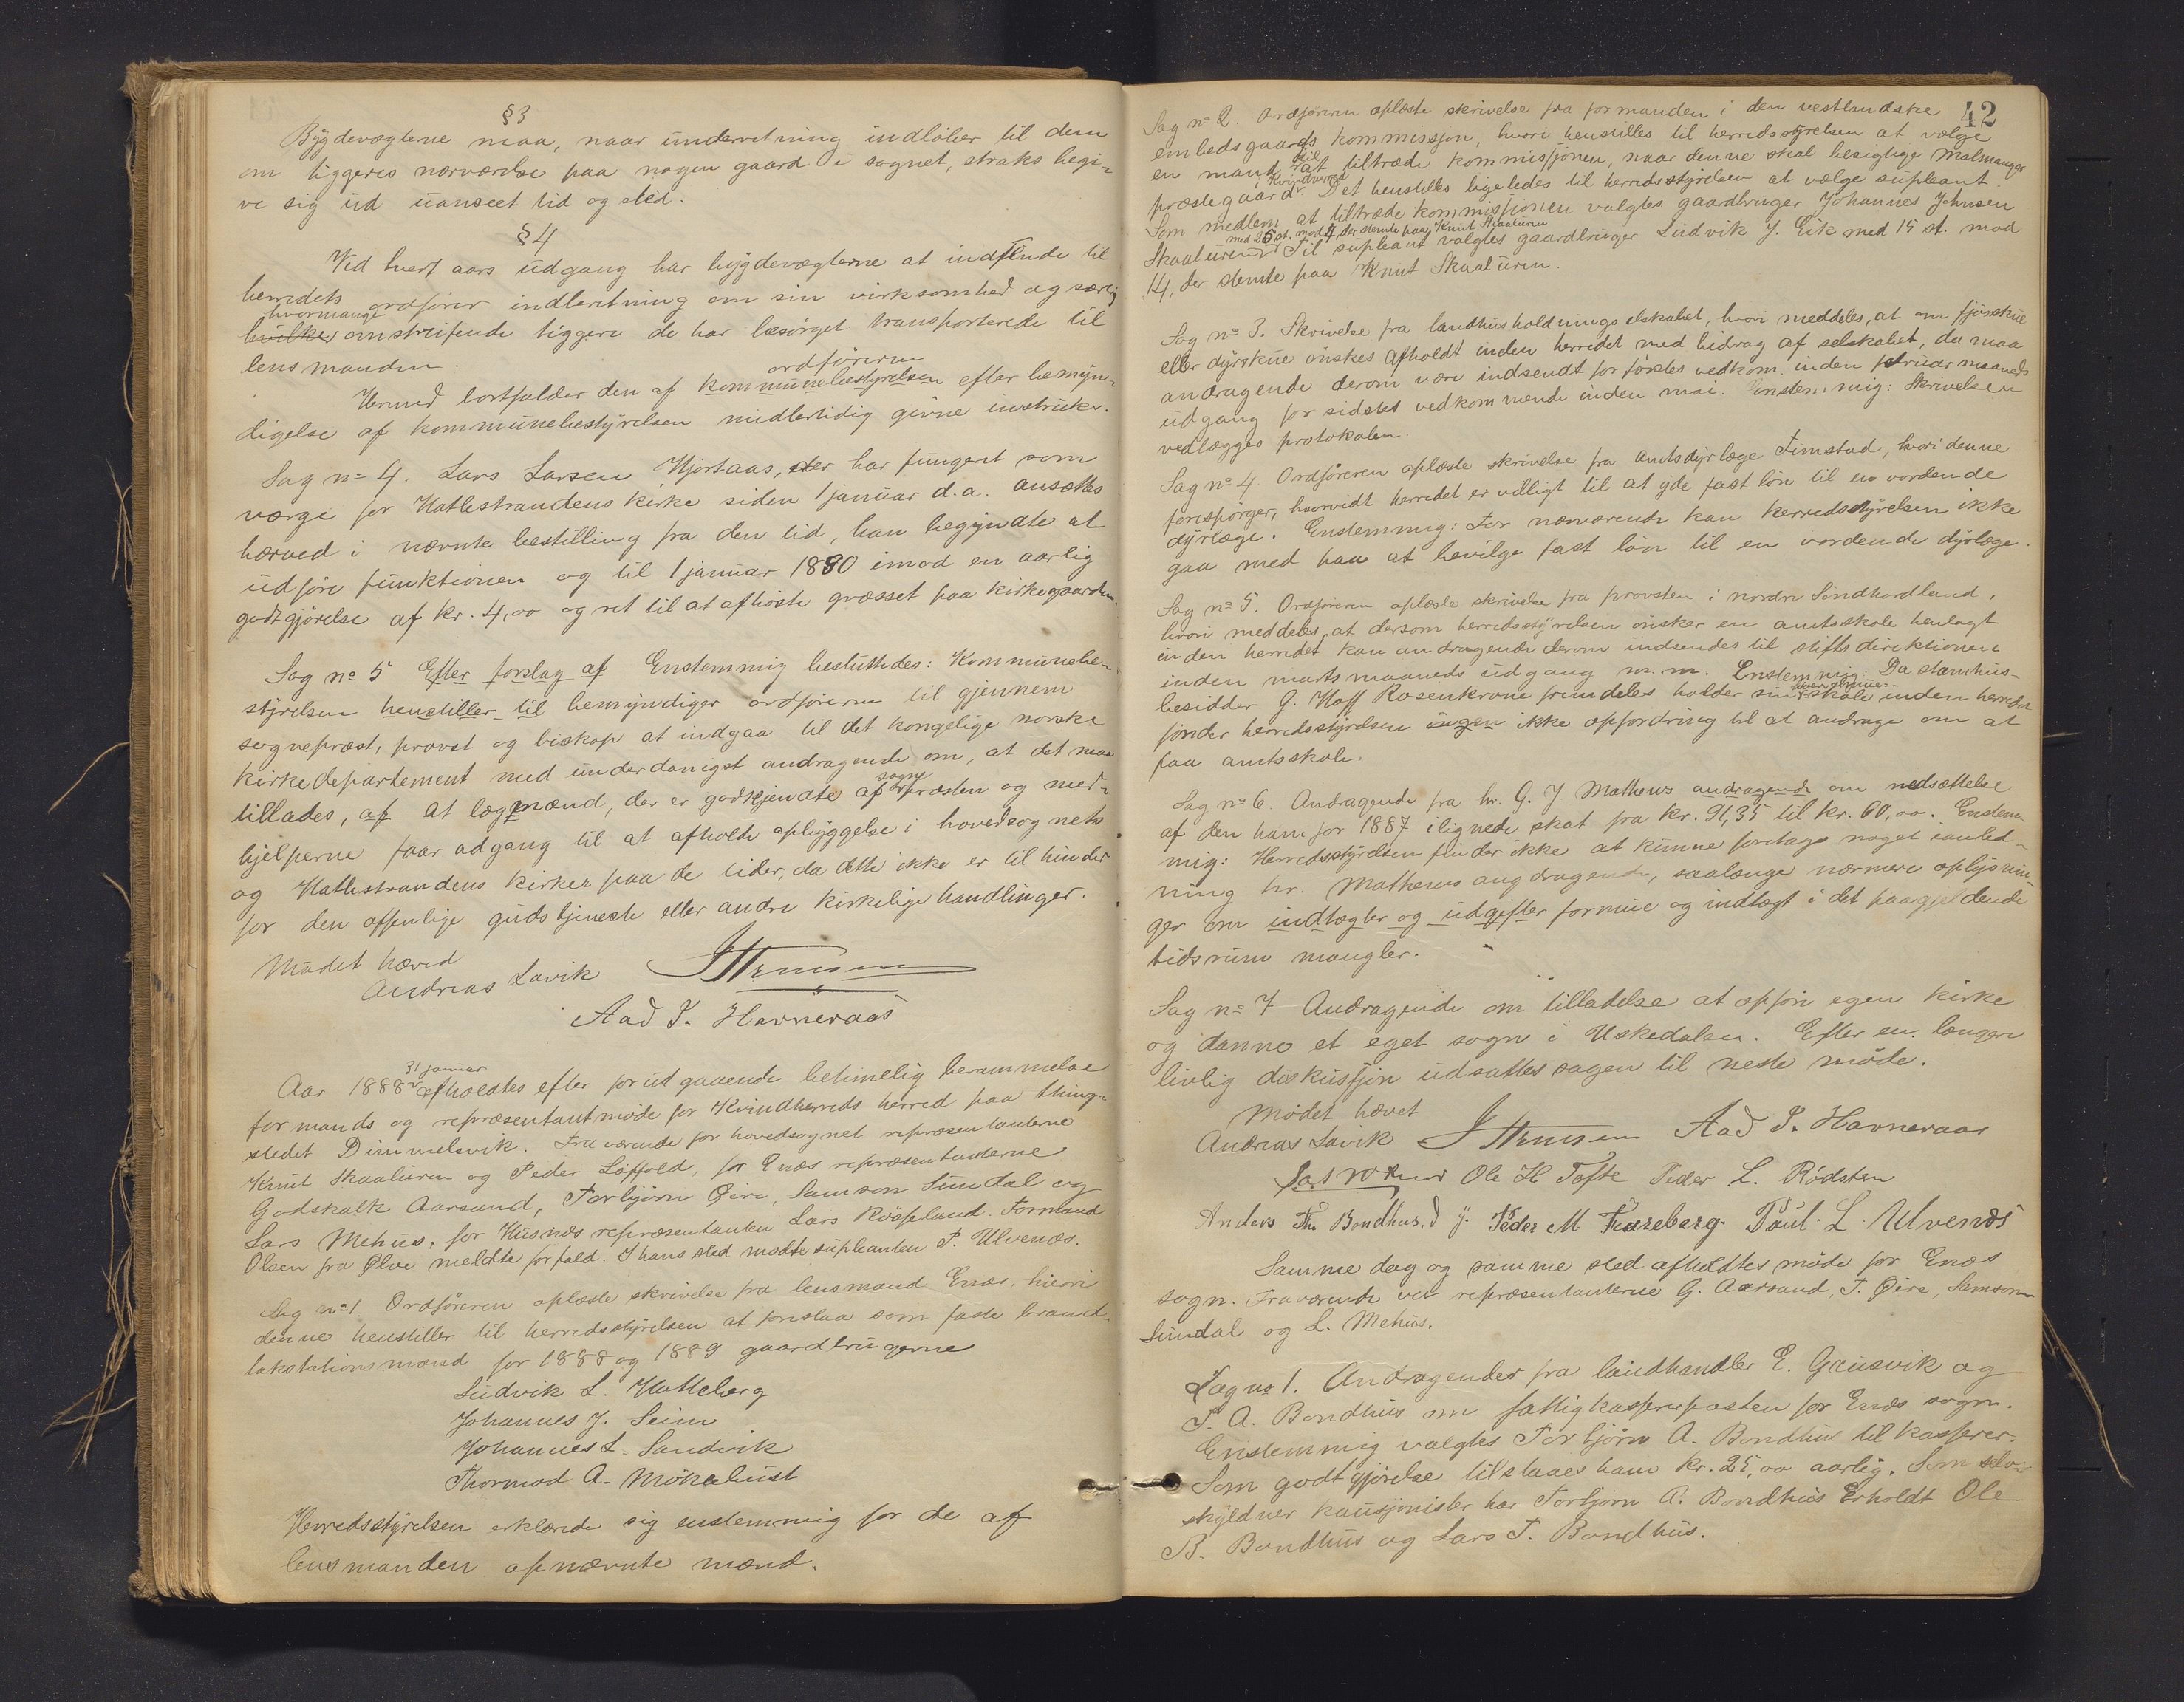 §3
Bygdevægterne maa, naar underretning indløber til dem
om tiggeres nærværelse paa nogen gaard i sognet, straks begi-
ve sig ud uanseet tid og sted.
§4
Ved hvert aars udgang har bygdevægterne at indsende til
herredets ordfører indberetning om sin virksomhed og særlig
hvormange
hvilke omstreifende tiggere de har besørget transporterede til
lensmanden.
ordføreren
Hermed bortfalder den af kommunebestyrelsen efter bemyn-
digelse af kommunebestyrelsen midlertidig givne instruks.
Sag no 4. Lars Larsen Hjortaas, der har fungeret som
værge for Hatlestrandens kirke siden 1 januar d.a. ansættes
herved i nævnte bestilling fra den tid, han begyndte at
udføre funktionen og til 1 januar 1890 imod en aarlig
godtgjørelse af kr. 4,00 og ret til at afhøste græsset paa kirkegaarden.
Sag no 5 Efter forslag af Enstemmig besluttedes: Kommunebe-
styrelsen henstiller til bemyndiger ordføreren til gjennem
sognepræst, provst og biskop at indgaa til det kongelige norske
kirkedepartement med underdanigst andragende om, at det maa
tillades, af at lægmænd, der er godkjendte af sognepræsten og med-
hjelperne faar adgang til at afholde opbyggelse i hovedsognets
og Hatlestrandens kirker paa de tider, da dette ikke er til hinder
for den offenlige gudstjeneste eller andre kirkelige handlinger.
Mødet hæved
Andreas Lavik
Aad P. Havneraas
31 januar
Aar 1888 afholdtes efter forutgaaende betimelig berammelse
formands og repræsentantmøde for Kvindherreds herred paa thing-
stedet Dimmelsvik. Fraværende for hovedsognet repræsentanterne
Knut Skaaluren og Peder Løffald, for Enæs repræsentanterne
Godskalk Aarsand, Torbjørn Øire, Samson Sundal og
Lars Mehus, for Husnæs repræsentanten Lars Røssland. Formand
Olsen fra Ølve meldte forfald. I hans sted mødte supleanten P. Ulvenæs.
Sag no 1. Ordføreren oplæste skrivelse fra lensmand Enæs, hvori
denne henstiller til herredsstyrelsen at foreslaa som faste brand-
takstationsmænd for 1888 og 1889 gaardbrugerne
Ludvik L. Hatleberg
Johannes J. Seim
Johannes L. Sandvik
Thormod A. Møkelbust
Herredsstyrelsen erklærede sig enstemmig for de af
lensmanden opnævnte mænd.
42
Sag no 2. Ordføreren oplæste skrivelse fra formanden i den vestlandske
embedsgaards kommission, hvori henstilles til herredsstyrelsen at vælge
en mand til at tiltræde kommissjonen, naar denne skal besigtige Malmanger
præstegaard Kvindherred. Det henstilles ligeledes til herredsstyrelsen at vælge supleant.
Som medlem at tiltræde kommissjonen valgtes gaardbruger Johannes Johnsen
med 25 st. mod 4 der stemte paa Knut Skaaluren
Skaaluren. Til supleant valgtes gaardbruger Ludvik J. Eik med 15 st. mod
14, der stemte paa Knut Skaaluren.
Sag no 3. Skrivelse fra landhusholdningselskabet, hvori meddeles, at om fjøsskue
eller dyrskue ønskes afholdt inden herredet med bidrag af selskabet, da maa
andragende derom være indsendt for førstes vedkom. inden februar maaneds
udgang for sidstes vedkommende inden mai. Enstemmig: Skrivelsen
vedlægges protokolen.
Sag no 4 Ordføreren oplæste skrivelse fra amtsdyrlæge Fimstad, hvori denne
forespørger, hvorvidt herredet er villigt til at yde fast løn til en vordende
dyrlæge. Enstemmig: For nærværende kan herredsstyrelsen ikke
gaa med paa at bevilge fast løn til en vordende dyrlæge.
Sag no 5. Ordføreren oplæste skrivelse fra provsten i nordre Søndhordland,
hvori meddeles, at dersom herredsstyrelsen ønsker en amtsskole henlagt
inden herredet kan andragende derom indsendes til stiftsdirektionen
inden marts maaneds udgang m.m. Enstemmig: Da stamhus-
besidder G. Hoff Rosenkrone fremdeles holder sin skole inden herredet
finder herredsstyrelsen ingen ikke opfordring til at andrage om at
faa amtsskole.
Sag no 6. Andragende fra hr. G. J Mathews andragende om nedsættelse
af den ham for 1887 ilignede skat fra kr. 91,35 til kr. 60,00. Enstem-
mig: Herredsstyrelsen finder ikke at kunne foretage noget ianled-
ning hr. Mathews angdragende, saalænge nærmere oplysnin-
ger om indtægter og udgifter formue og indtægt i det paagjeldende
tidsrum mangler.
Sag no 7 Andragende om tilladelse at opføre egen kirke
og danne et eget sogn i Uskedalen. Efter en længere
livlig diskussjon udsattes sagen til neste møde.
Mødet hævet
Andreas Lavik Aad P. Havneraas
Ole H Tofte Peder L. Rødsten
Anders Th. Bondhus.d y. Peder M Fureberg. Paul. L Ulvenæs
Samme dag og samme sted afholdtes møde for Enæs
sogn. Fraværende var repræsentanterne G. Aarsand, T. Øire, Samson
Sundal og L. Mehus.
Sag no 1. Andragender fra landhandler E. Gausvik og
T. A. Bondhus om fattigkassererposten for Enæs sogn.
Enstemmig valgtes Torbjørn A. Bondhus til kasserer.
Som godtgjørelse tilstaaes ham kr. 25,00 aarlig. Som selv-
skyldner kausjonister har Torbjørn A. Bondhus erholdt Ole
B. Bondhus og Lars T. Bondhus.